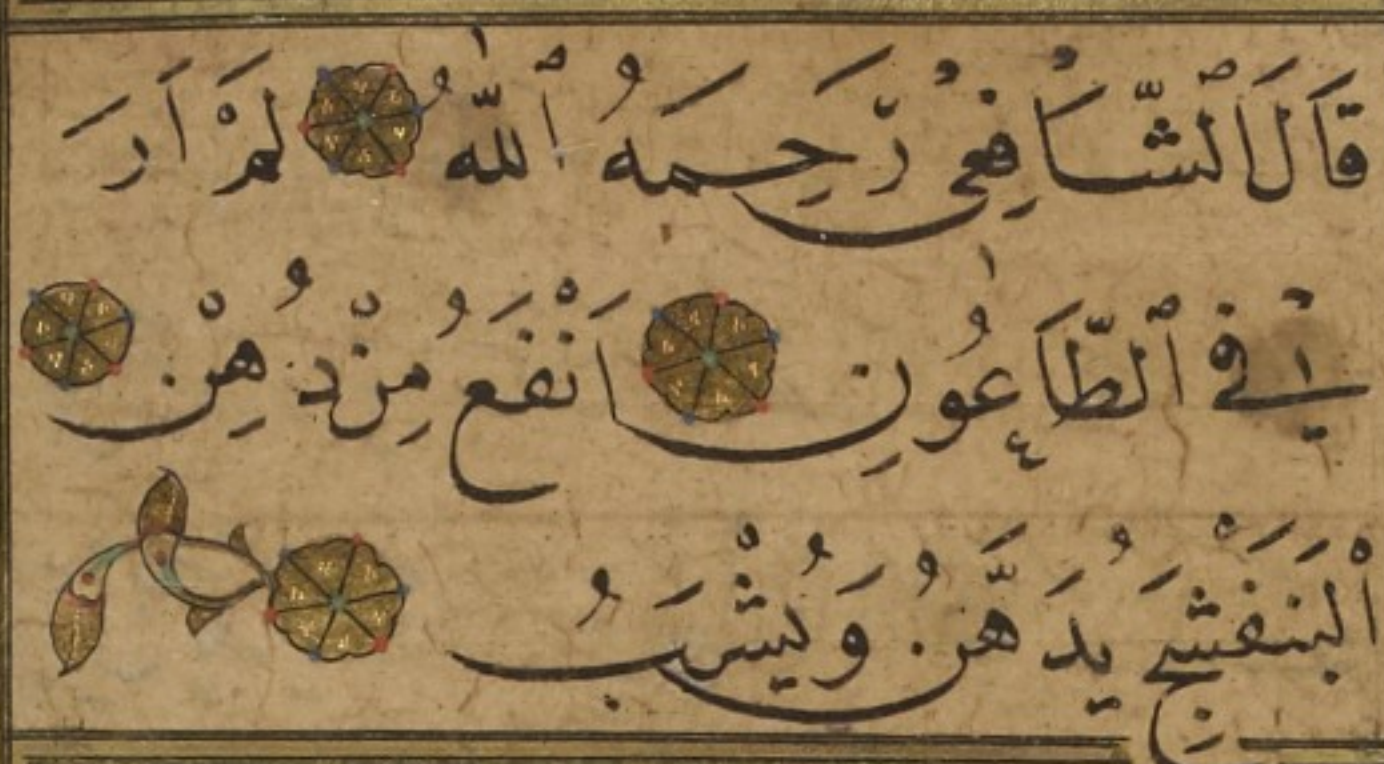 قَالَ ٱلشَّافِعِيُّ رَّحِمَهُ ٱللّٰهُ لَمْ اَرَ
فِي ٱلطَّاعُونِ اَنْفَعُ مِنْ دُهْنِ
اْلبَنَفْشَجِ يُدَهَّنُ وَيُشْرَبُ